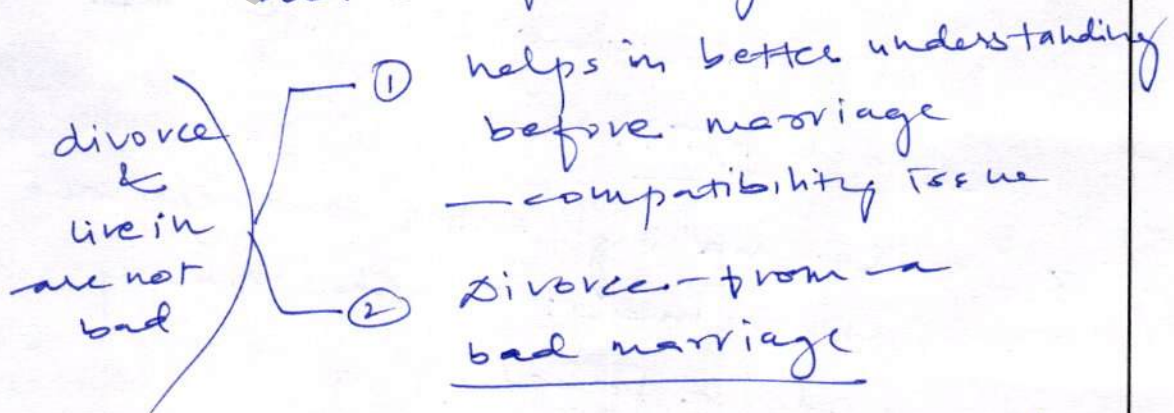 divorce
&
live in
are not
bad
① helps in better understanding
before marriage
— compatibility issue
② Divorce - from a
bad marriage